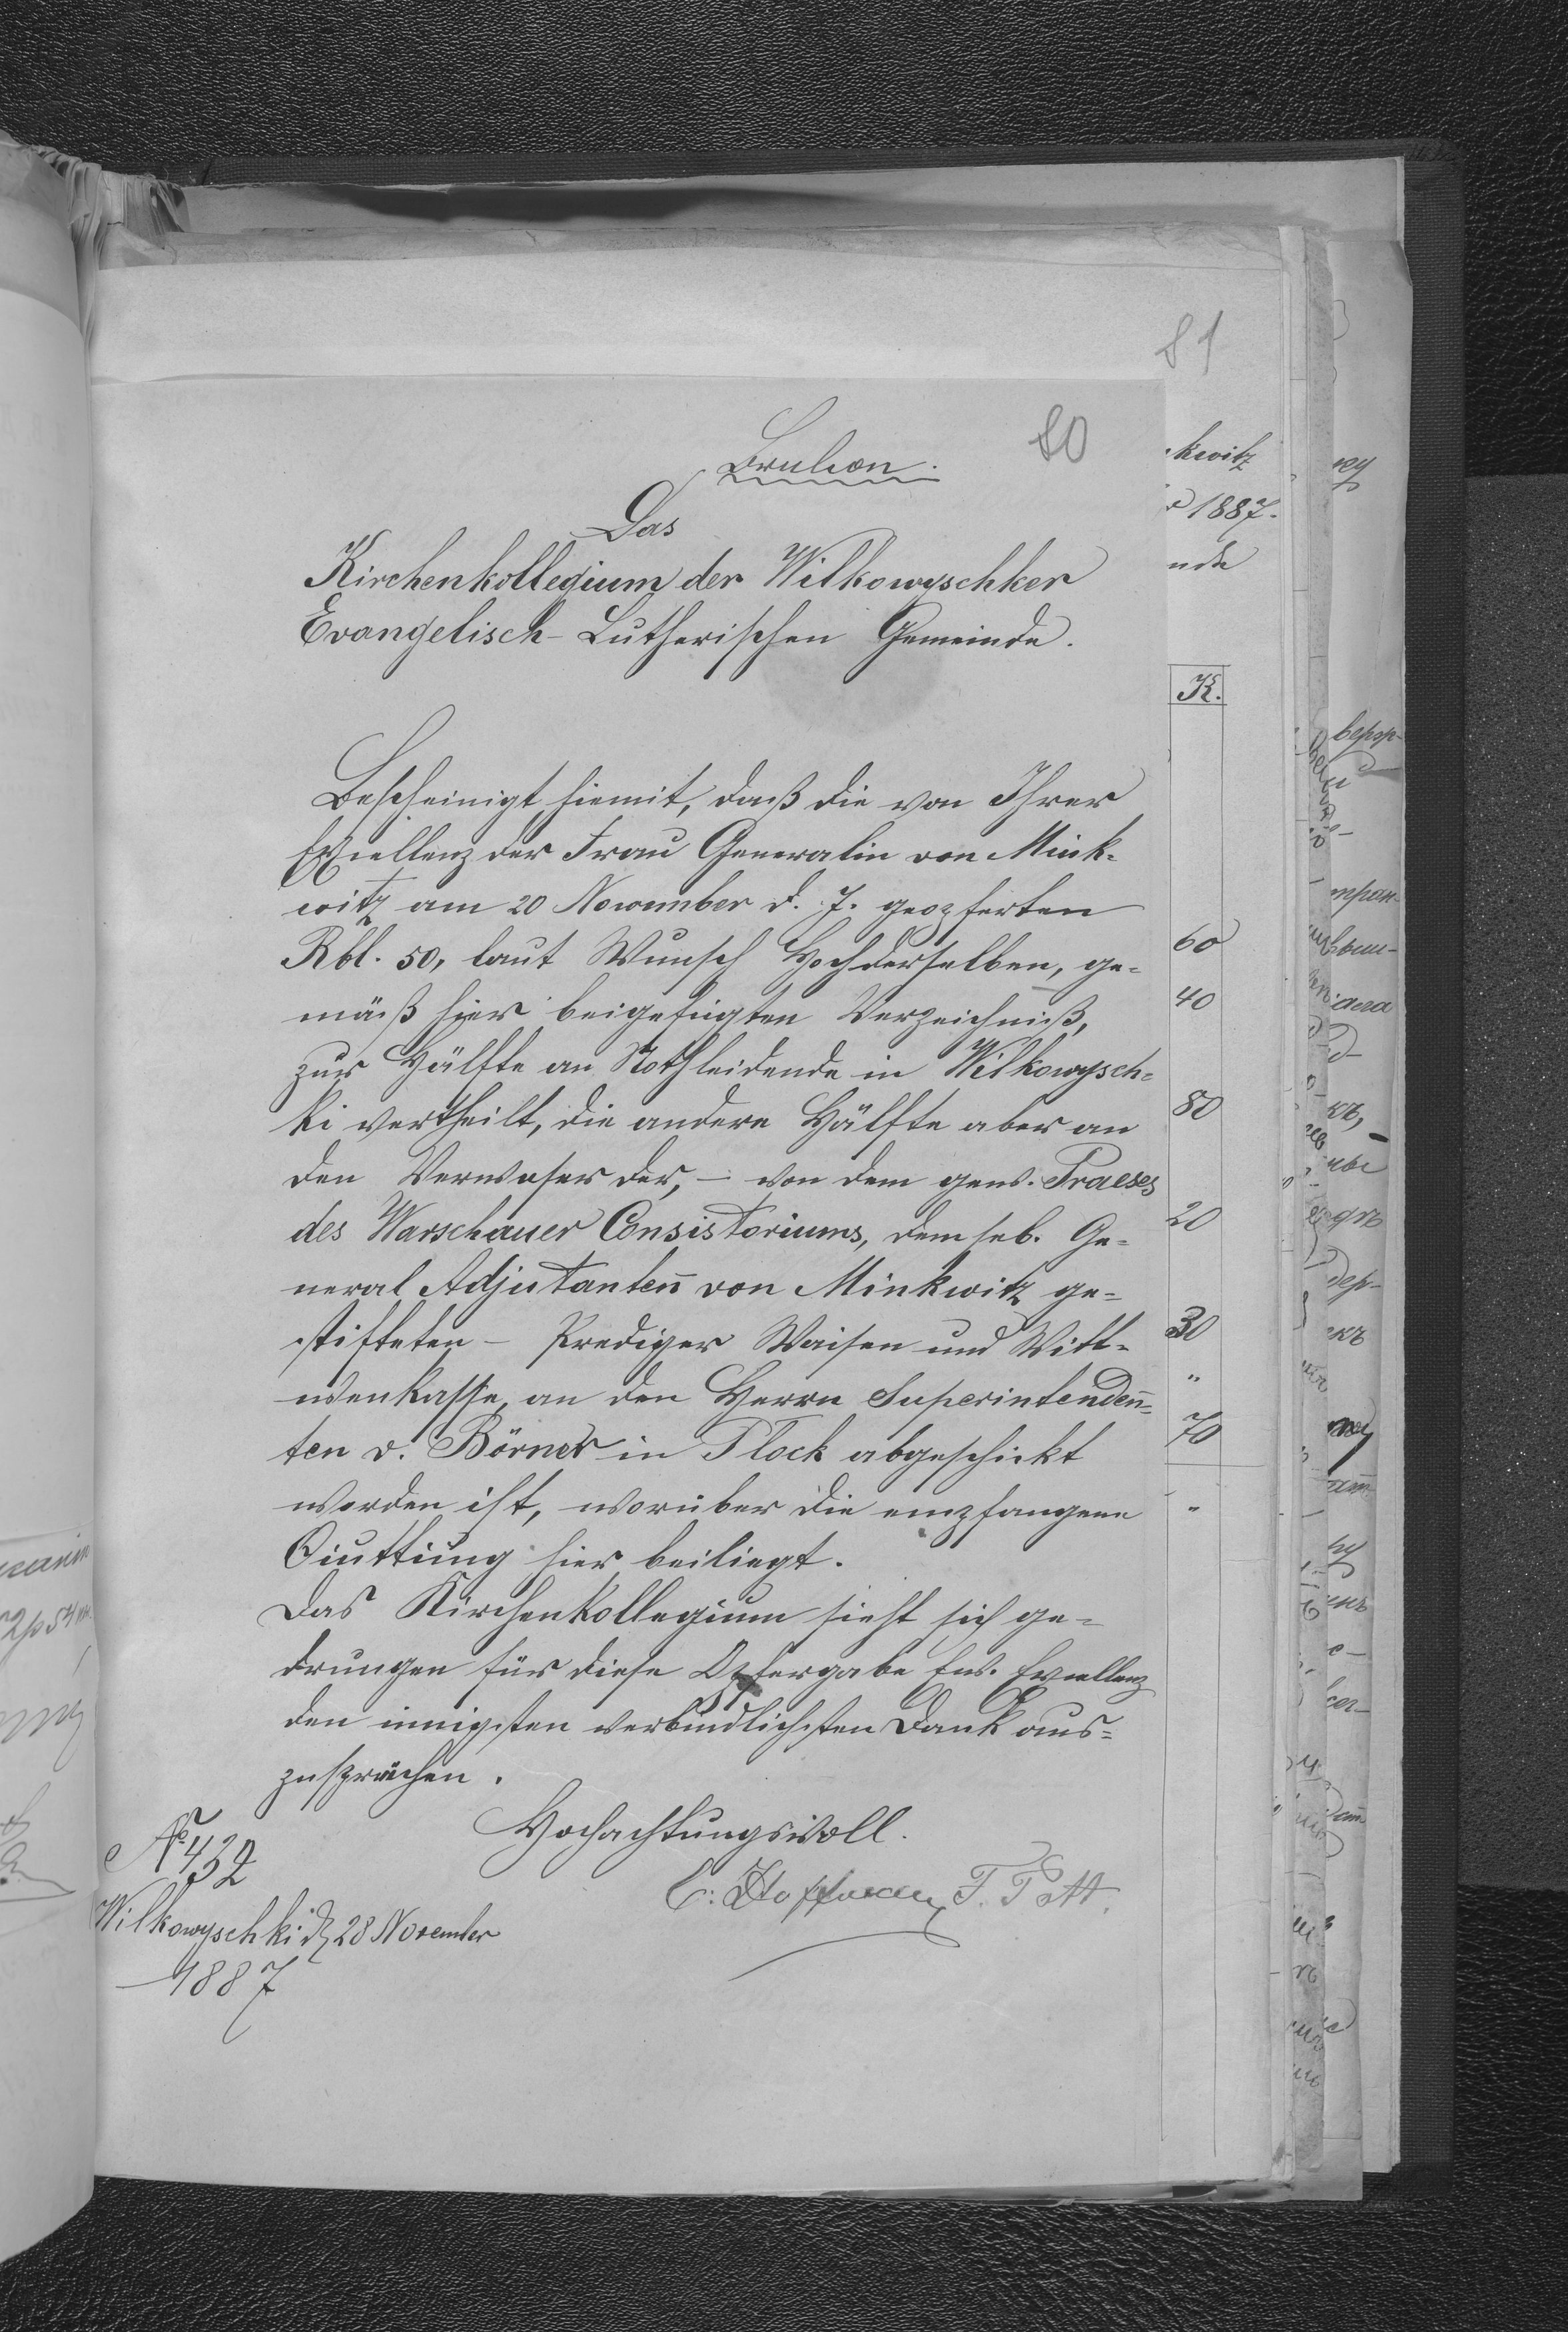 81
80
Das
Kirchenkollegium der Wilkowyschker
Evangelisch-Lutherischen Gemeinde.
Bescheinigt hiemit, daß die von Ihrer
Excellenz der Frau Generalin von Mink-
witz am 20 November d. J. geopferten
Rbl. 50, laut Wunsch Hochderselben, ge-
mäß hier beigefügten Verzeichniß,
zur Hälfte an Nothleidende in Wilkowysch-
ki vertheilt, die andere Hälfte aber an
den Verweser der, – von dem gew. Praeses
des Warschauer Consistoriums, dem sel. Ge-
neral Adjutanten von Minkwitz ge-
stifteten – Prediger Waisen und Witt-
wenkasse, an den Herrn Superintenden-
ten v. Börner in Plock abgeschickt
worden ist, worüber die empfangene
Quittung hier beiliegt.
Das Kirchenkollegium sieht sich ge-
drungen für diese Opfergabe Ew. Excellenz
den innigsten verbindlichsten Dank aus-
zusprechen.
Hochachtungsvoll.
E. Hoffmann F. Pott.
№ 432
Wilkowyschki d. 28 November
1887
kwitz
1887.
nde
K.
60
40
80
20
30
"
70
"